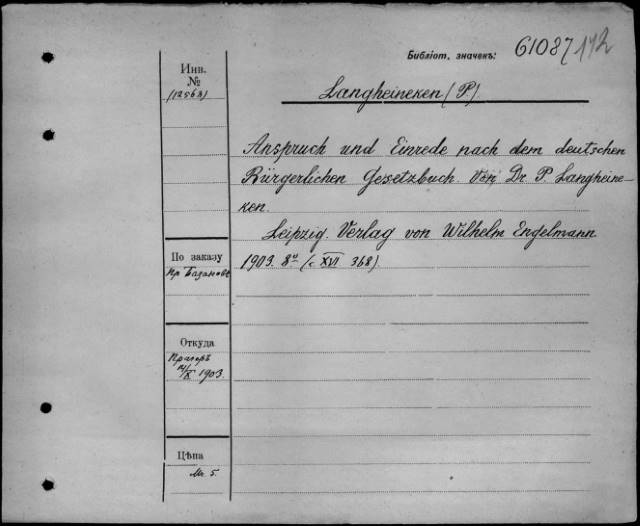 Библіот. значекъ: 61087/142
Инв.
№
(12563)
Langheineken (P)
Anspruch und Einrede nach dem deutschen
Bürgerlichen Gesetzbuch. Dr. P. Langheine-
ken.
Leipzig. Verlag von Wilhelm Engelmann
1903. 8º (c. XVI 368).
По заказу
пр Базанова
Откуда
Прагеръ
X 1903.
Цѣна
Mr. 5.